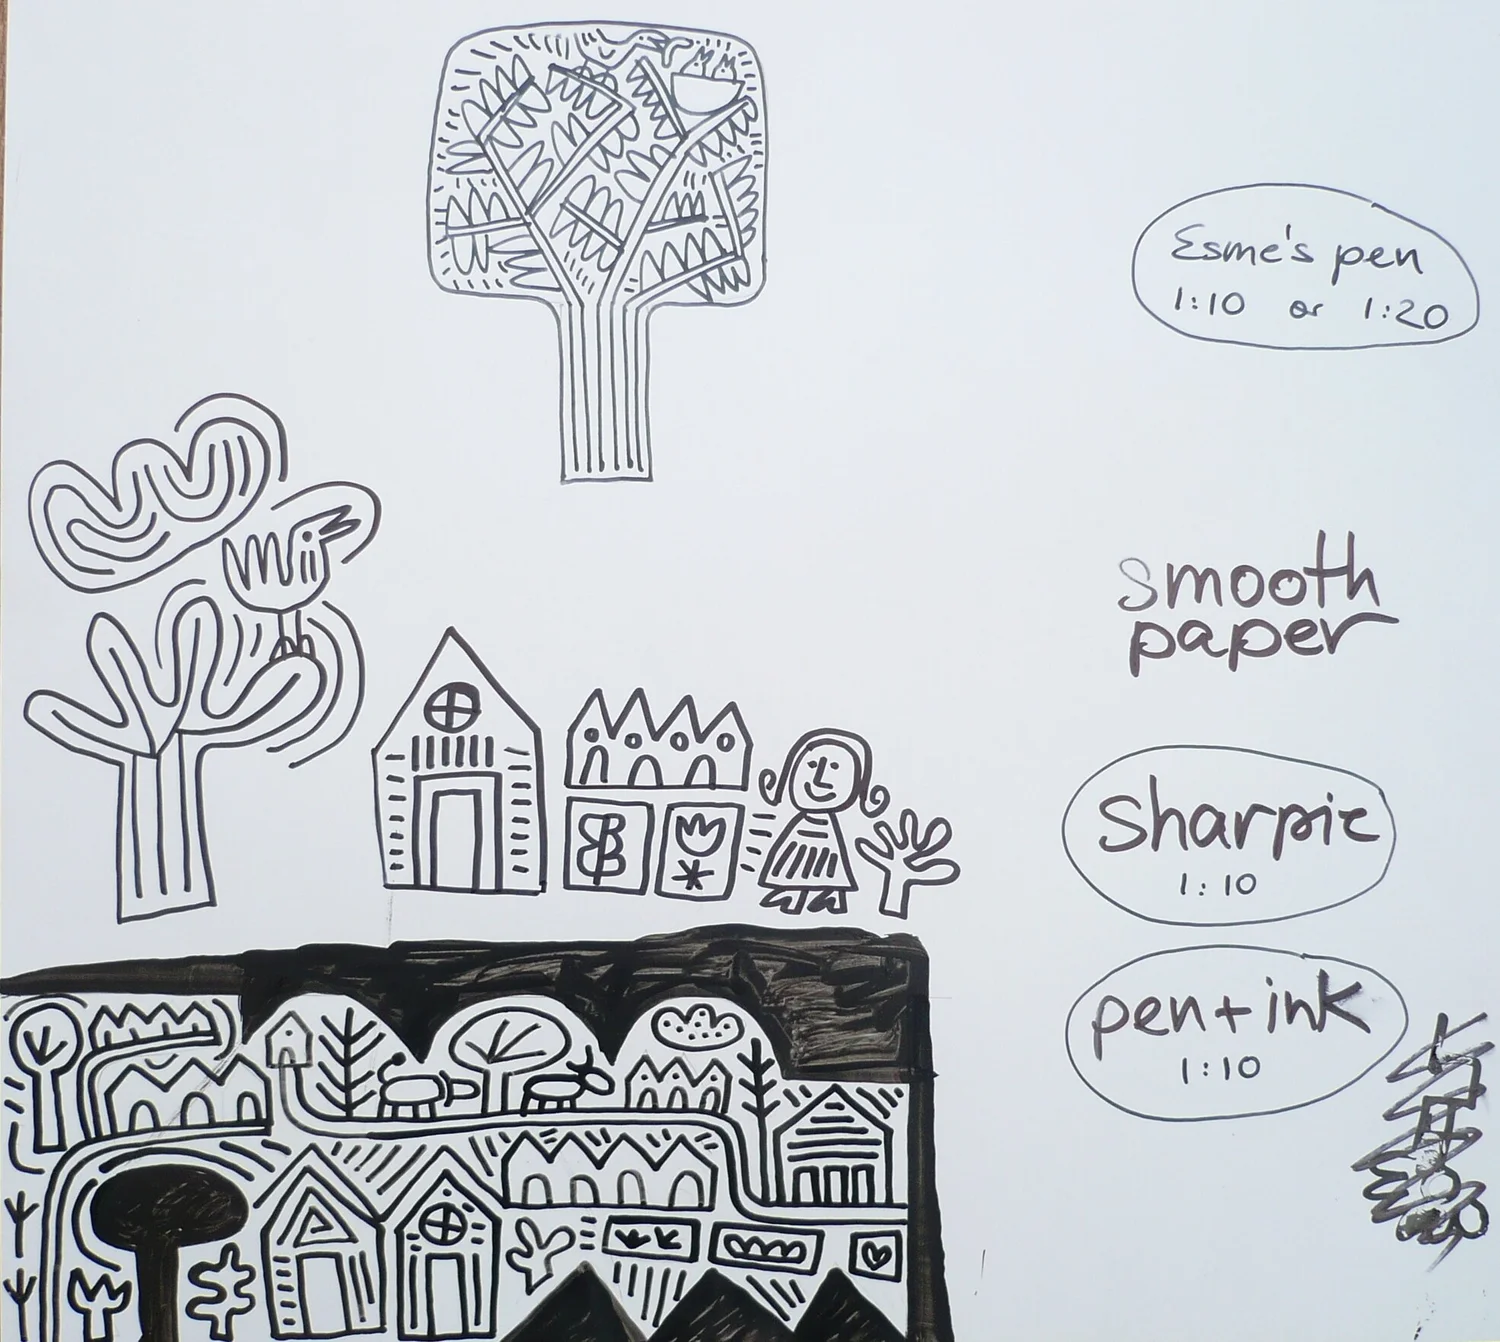 Esme's pen
1:10 or 1:20
smooth
paper
Sharpie
1:10
pen + ink
1:10